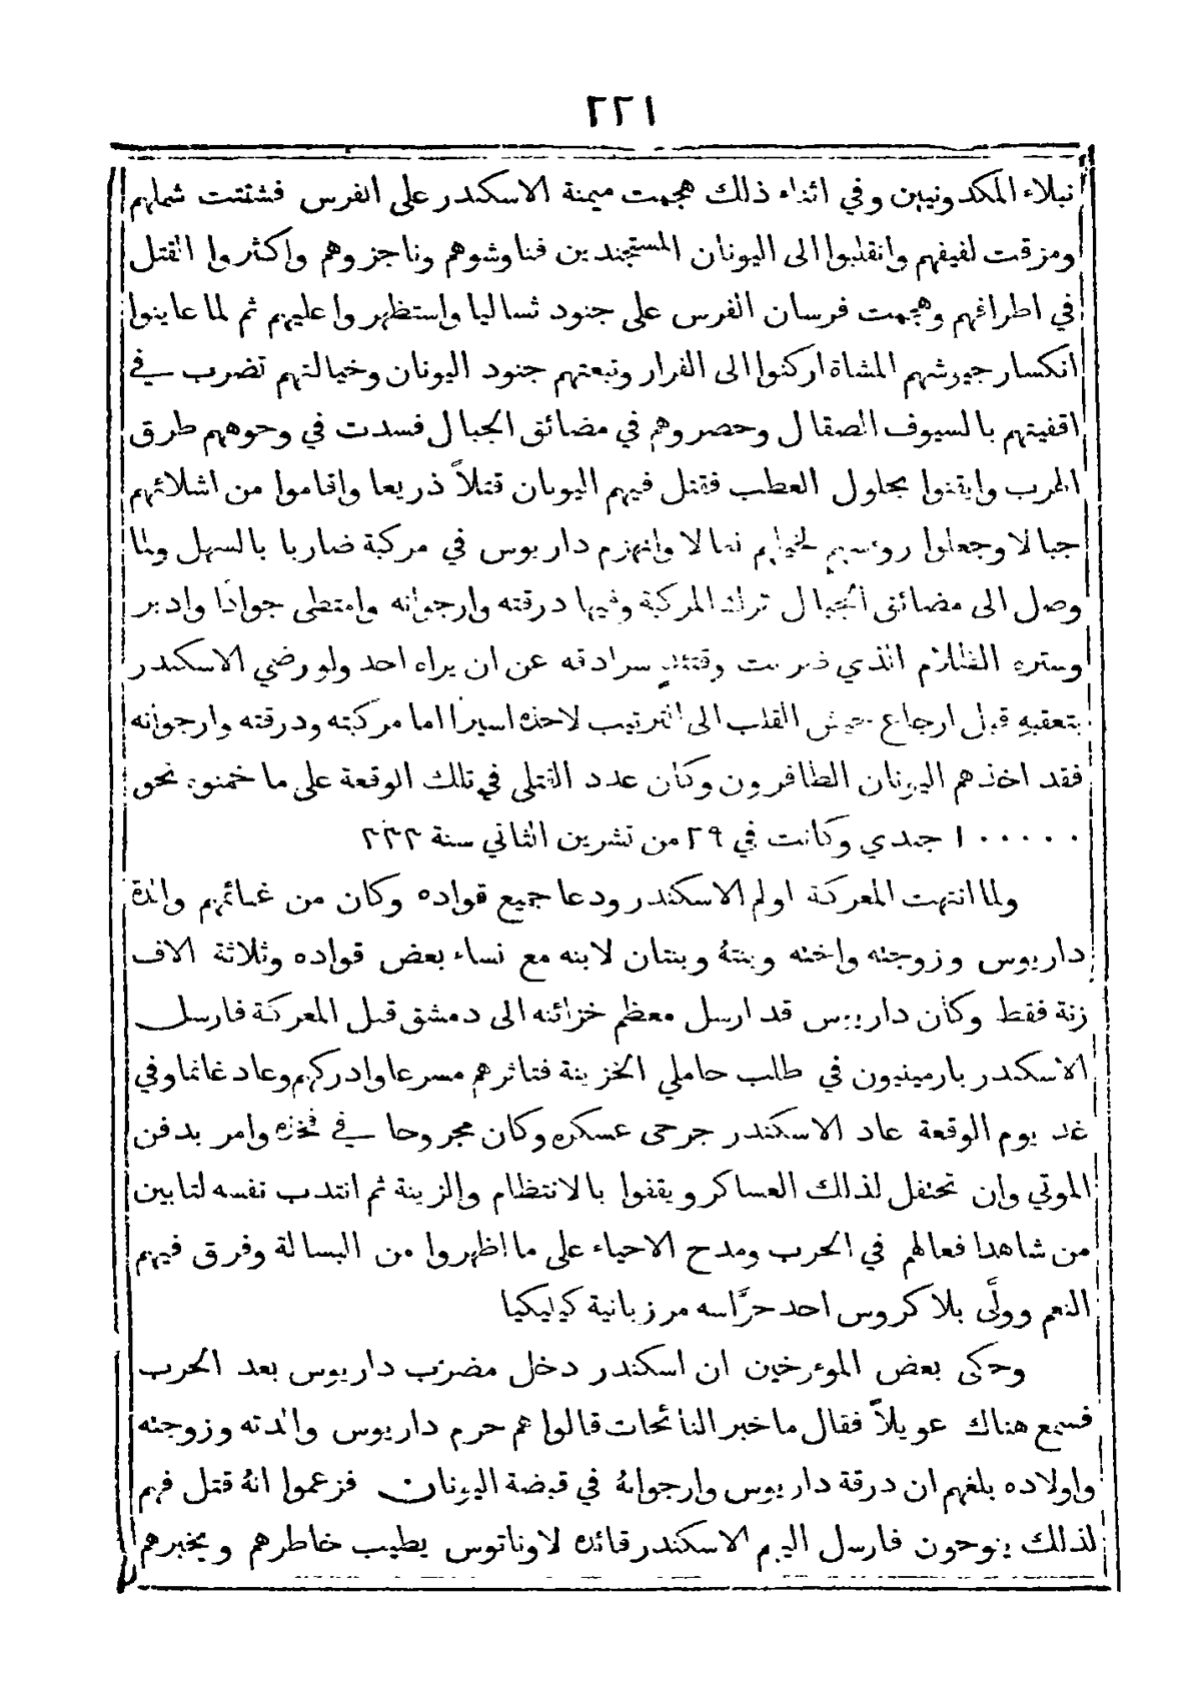 ٢٢١
نبلاء المكدونيين وفي اثناء ذلك هجمت ميمنة الاسكندر على الفرس فشتتت شملهم
ومزقت لفيفهم وانقلبوا الى اليونان المستجندين فناوشوهم وناجزوهم واكثروا القتل
في اطرافهم وهجمت فرسان الفرس على جنود ثساليا واستظهروا عليهم ثم لما عاينوا
انكسار جيوشهم المشاة اركنوا الى الفرار وتبعتهم جنود اليونان وخيالتهم تضرب في
اقفيتهم بالسيوف الصقال وحصروهم في مضائق الجبال فسدت في وجوههم طرق
الهرب وايقنوا بحلول العطب فقتل فيهم اليونان قتلاً ذريعا واقاموا من اشلائهم
جبالا وجعلوا رؤسهم لخيلهم نعالا وانهزم داريوس في مركبة ضاربا بالسهل ولما
وصل الى مضائق الجبال ترك المركبة وفيها درقته وارجوانه وامتطى جوادًا وادبر
وستره الظلام الذي ضربت وقتئذٍ سرادقه عن ان يراه احد ولو رضي الاسكندر
بتعقبهِ قبل ارجاع جيش القلب الى الترتيب لاخذه اسيرًا اما مركبته ودرقته وارجوانه
فقد اخذهم اليونان الظافرون وكان عدد القتلى في تلك الوقعة على ما خمنوه نحو
١٠٠٠٠٠ جندي وكانت في ٢٩ من تشرين الثاني سنة ٣٣٣
ولما انتهت المعركة اولم الاسكندر ودعا جميع قواده وكان من غنائمهم والدة
داريوس وزوجته واخته وبنتهُ وبنتان لابنه مع نساء بعض قواده وثلاثة الاف
زنة فقط وكان داريوس قد ارسل معظم خزائنه الى دمشق قبل المعركة فارسل
الاسكندر بارمينيون في طلب حاملي الخزينة فتاثرهم مسرعا وادركهم وعاد غانما وفي
غد يوم الوقعة عاد الاسكندر جرحى عسكره وكان مجروحا في فخذه وامر بدفن
الموتي وان تحتفل لذلك العساكر ويقفوا بالانتظام والزينة ثم انتدب نفسه لتابين
من شاهدا فعالهم في الحرب ومدح الاحياء على ما اظهروا من البسالة وفرق فيهم
النعم وولَّى بلاكروس احد حرَّاسه مرزبانية كيليكيا
وحكى بعض المؤرخين ان اسكندر دخل مضرَب داريوس بعد الحرب
فسمع هناك عويلاً فقال ما خبر النائحات قالوا هم حرم داريوس والدته وزوجته
واولاده بلغهم ان درقة داريوس وارجوانهُ في قبضة اليونان فزعموا انهُ قتل فهم
لذلك ينوحون فارسل اليهم الاسكندر قائده لاوناتوس يطيب خاطرهم ويخبرهم